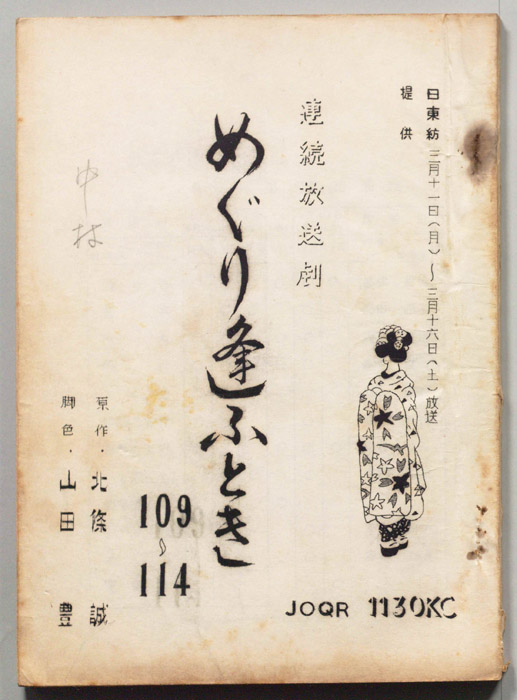 日東紡
提供
三月十一日(月)~三月十六日(土)放送
連続放送劇
めぐり逢ふとき
109
~
114
原作・北條誠
脚色・山田豊
中村
JOQR 1130KC